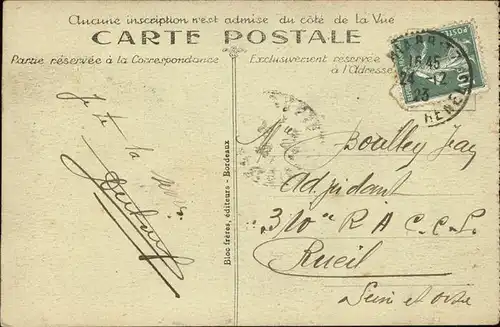 Aucune inscription n'est admise du côté de la Vue
CARTE POSTALE
Partie réservée à la Correspondance
Exclusivement réservée
à l'Adresse
16 45
24 12
23
Je te la
Bloc frères, éditeurs - Bordeaux
M Boulley Jean
Adjudant
310e R A C L
Rueil
Seine et oise